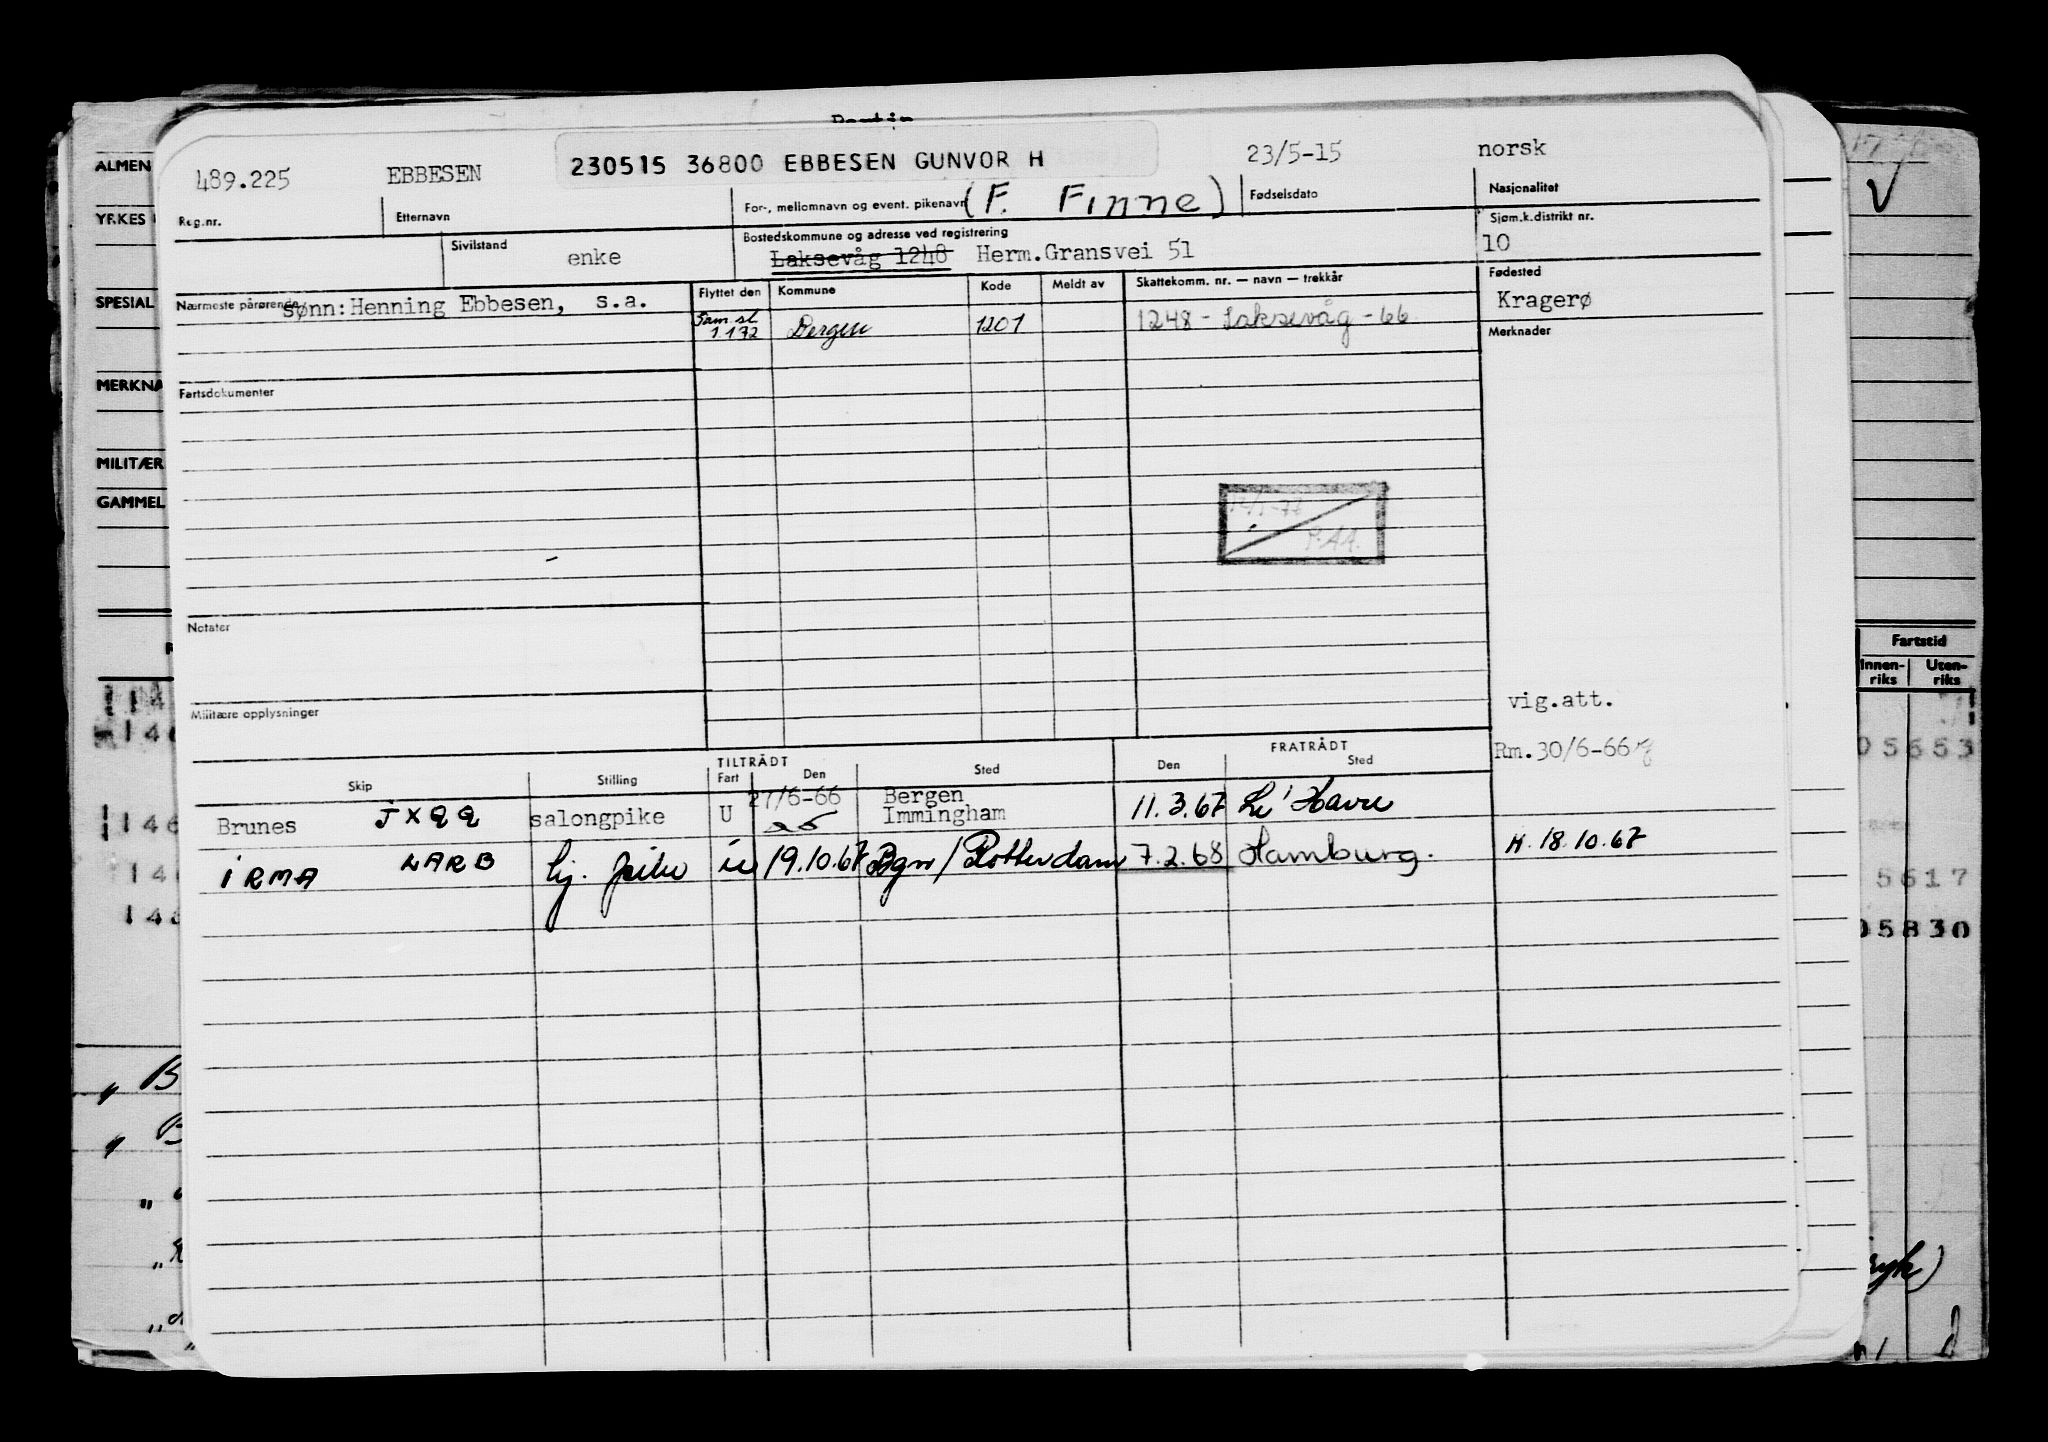 489.225 EBBESEN 230515 36800 EBBESEN GUNVOR H 23/5-15 norsk
Reg.nr. Etternavn For-, mellomnavn og event. pikenavn (F. Finne) Fødselsdato Nasjonalitet
Sivilstand enke Bostedskommune og adresse ved registrering Sjøm.k.distrikt nr.
Laksevåg 1248 Herm.Gransvei 51 10
Nærmeste pårørende sønn:Henning Ebbesen, s.a. Flyttet den Kommune Kode Meldt av Skattekomm. nr. — navn — trekkår Fødested
Kragerø
Sam.sl. 1.1 72 Bergen 1201 1248 - Laksevåg - 66
Merknader
Fartsdokumenter
P.AA.
Notater
Militære opplysninger
vig.att.
Rm.30/6-66
TILTRÅDT FRATRÅDT
Skip Stilling Fart Den Sted Den Sted
Brunes JXQQ salongpike U 27/6-66 Bergen Immingham 11.3.67 Le'Havre
IRMA LARB lj. pike u 19.10.67 Bgn/Rotterdam 7.2.68 Hamburg. H. 18.10.67
ALMEN
YRKES
SPESIAL
MERKNA
MILITÆR
GAMMEL
Fartstid
Innen-riks Uten-riks
05653
5617
05830